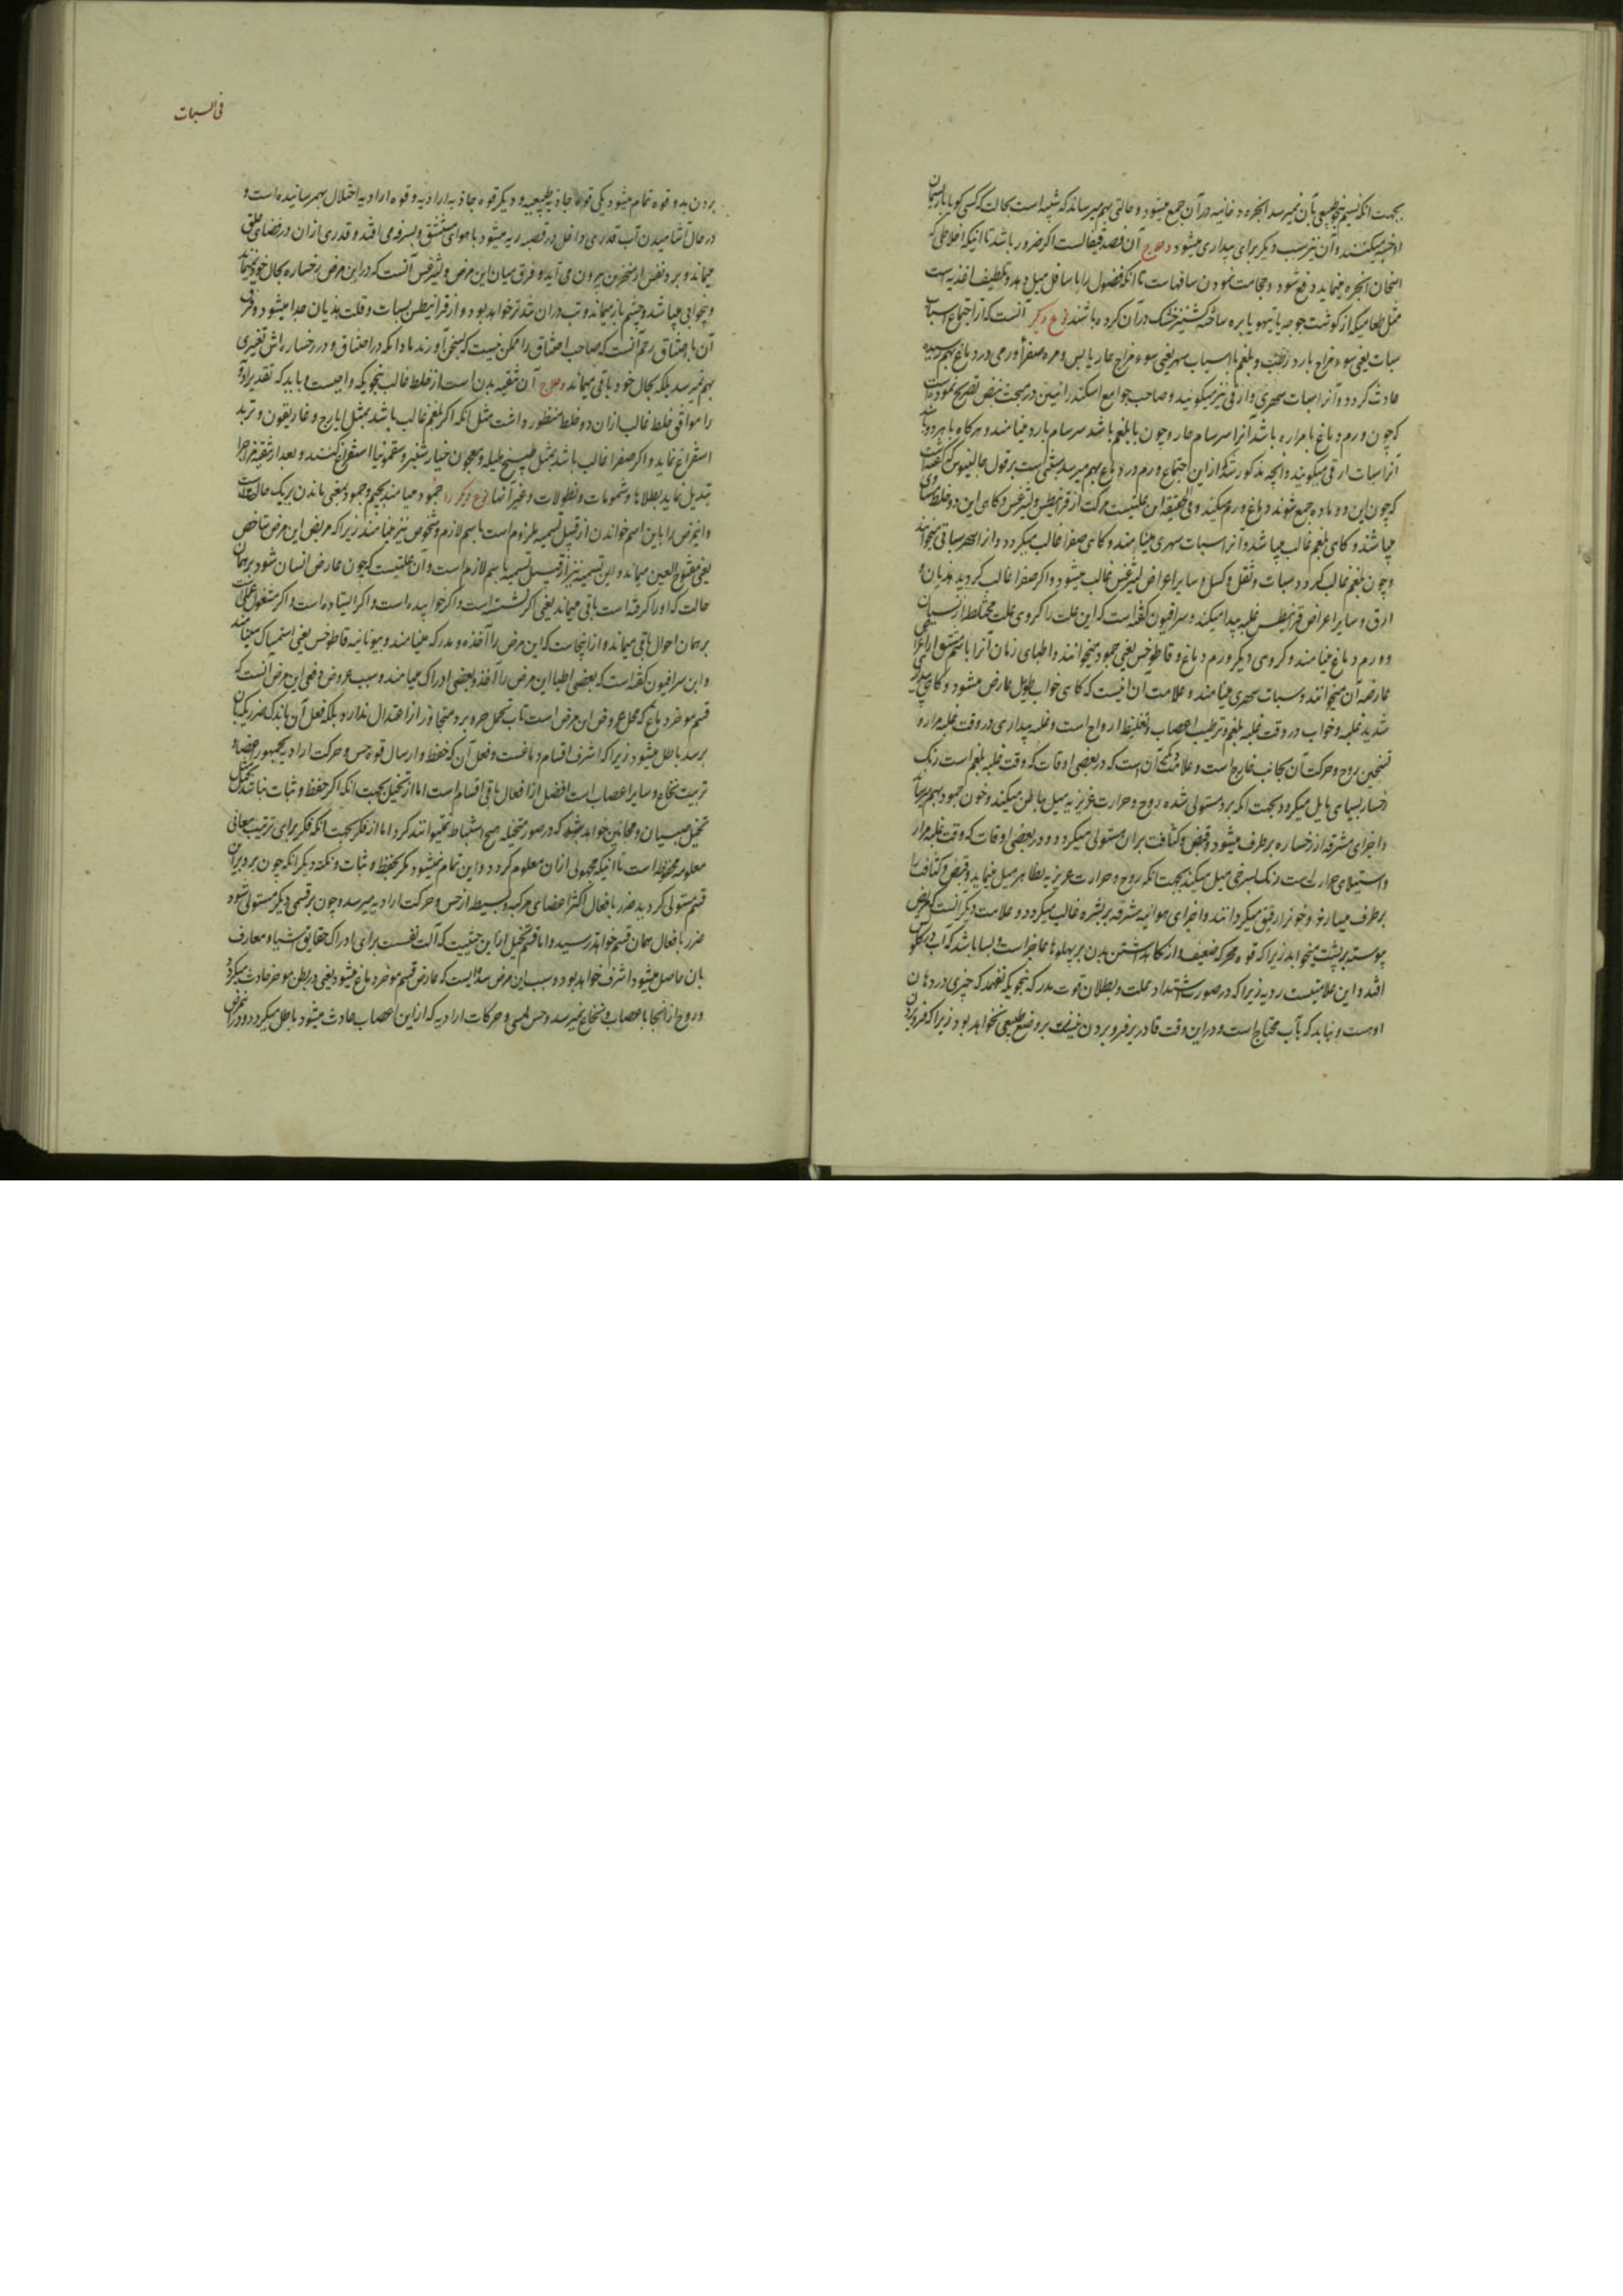 بجهت آنکه نسیم بنحو طبیعی بآن نمیرسد ابخره دخانیه در آن جمع میشود و حالتی بهم میرساند که شبیه است بحالت کسی که گویا با ریسمان
او خبه میکنند و آن نیز سبب دیگر برای بیداری میشود و علاج آن فصد قیفالست اگر ضرور باشد تا آنکه اخلاطی که
ابخره مینماید دفع شود و حجامت نمودن ساقهاست تا آنکه فضول را باسافل میل دهد و تلطیف اغذیه است
مثل طعامیکه از گوشت جوجه یا تیهو یا بره ساخته کشنیز خشک در آن کرده باشند نوع دیگر آنست که از اجتماع اسباب
سبات یعنی سوء مزاج بارد رطب و بلغم با اسباب سهر یعنی سوء مزاج حار یابس و مره صفرا ورمی در دماغ بهم رسیده
حادث گردد و آنرا سبات سهری و ارقی نیز میگویند و صاحب جوامع اسکندرانیین در مبحث نبض تصریح نموده است
که چون ورم دماغ با مراره باشد آنرا سرسام حار و چون با بلغم باشد سرسام بارد مینامند و هرگاه با هر دو باشد
آنرا سبات ارقی میگویند و آنچه مذکور شد که از این اجتماع ورم در دماغ بهم میرسد مبنی است بر قول جالینوس که گفته است
که چون این دو ماده جمع شوند دماغ ورم میکند و فی الحقیقه این علتیست مرکب از قرانیطس و لیثرغس و گاهی این دو خلط مساوی
میباشند و گاهی بلغم غالب میباشد و آنرا سبات سهری مینامند و گاهی صفرا غالب میگردد و آنرا سهر سباتی میخوانند
و چون بلغم غالب گردد سبات و ثقل و کسل و سایر اعراض لیثرغس غالب میشود و اگر صفرا غالب گردید هذیان و
ارق و سایر اعراض قرانیطس غلبه پیدا میکند و سرافیون گفته است که این علت را گروهی علت مختلط از نسیان
و ورم دماغ مینامند و گروهی دیگر ورم دماغ و قاطوخس یعنی جمود میخوانند و اطبای زمان آنرا باسم مشتق از اعراض
عارضه آن میخوانند و سبات سهری مینامند و علامت آن اینست که گاهی خواب طویل عارض میشود و گاهی بیداری
شدید غلبه و خواب در وقت غلبه بلغم و ترطیب اعصاب و تغلیظ ارواح است و غلبه بیداری در وقت غلبه مرار و
تسخین روح و حرکت آن بجانب خارج است و علامت دیگر آن است که در بعضی اوقات که وقت غلبه بلغم است رنگ
رخسار بسیاهی مایل میگردد بجهت آنکه برد مستولی شده روح و حرارت غریزیه میل بباطن میکند و خون جمود بهم میرساند
و اجزای مشرقه از رخساره برطرف میشود و قبض و کثافت بر آن مستولی میگردد و در بعضی اوقات که وقت غلبه مرار
و استیلای حرارتست رنگ بسرخی میل میکند بجهت آنکه روح و حرارت غریزیه بظاهر میل مینماید و قبض و کثافت را
برطرف میسازند و خون را رقیق میگردانند و اجزای هوائیه مشرقه بر بشره غالب میگردد و علامت دیگر آنست که مریض
پیوسته بر پشت میخوابد زیرا که قوه محرکه ضعیف و از نگاه داشتن بدن بر پهلوها عاجز است و بسا باشد که آب در گلوش
افتد و این علامتیست ردیه زیرا که در صورت اشتداد علت و بطلان قوت مدرکه بنحویکه نفهمد که چیزی در دهان
او هست و نیابد که بآب محتاج است و در این وقت قادر بر فرو بردن نیز بر وضع طبیعی نخواهد بود زیرا که فرو بردن
فی السبات
بردن بدو قوه تمام میشود یکی قوه جاذبه طبیعیه و دیگر قوه جاذبه ارادیه و قوه ارادیه اختلال بهم رسانیده است و
در حال آشامیدن آب قدری داخل در قصبه ریه میشود با هوای مستنشق و بسرفه می افتد و قدری از آن در فضای حلق
میماند و برد نفس از منخرین بیرون می آید و فرق میان این مرض و لیثرغس آنست که در این مرض رخساره بحال خود نمیماند
و بیخوابی میباشد و چشم باز میماند و تب در آن شدتر خواهد بود و از قرانیطس بسبات و قلت هذیان جدا میشود و فرق
آن با اختناق رحم آنست که صاحب اختناق را ممکن نیست که بسخن آورند مادامکه در اختناق و در رخساره اش تغییری
بهم نمیرسد بلکه بحال خود باقی میماند و علاج آن تنقیه بدن است از خلط غالب بنحویکه واجبست و باید که تقدیر ادویه
را موافق خلط غالب از آن دو خلط منظور داشت مثل آنکه اگر بلغم غالب باشد بمثل ایارج و غاریقون و تربد
استفراغ نماید و اگر صفرا غالب باشد بمثل طبیخ هلیله و معجون خیار شنبر و سقمونیا استفراغ کنند و بعد از تنقیه مزاج را
تبدیل نماید بطلاها و شمومات و نطولات و غیر آنها نوع دیگر را جمود مینامند بجیم و جمود بمعنی ماندن بر یک حالت است
و این مرض را باین اسم خواندن از قبیل تسمیه ملزوم است باسم لازم و شخوص نیز مینامند زیرا که مریض این مرض شاخص
یعنی مفتوح العین میماند و این تسمیه نیز از قبیل تسمیه باسم لازم است و آن علتیست که چون عارض انسان شود بر همان
حالت که او را گرفته است باقی میماند یعنی اگر نشسته است و اگر خوابیده است و اگر ایستاده است و اگر مشغول عملی است
بر همان احوال باقی میماند و از اینجاست که این مرض را آخذه و مدرکه مینامند و بیونانیه قاطوخس یعنی استمساک مینامند
و ابن سرافیون گفته است که بعضی اطبا این مرض را آخذه و بعضی ادراک مینامند و سبب عروض دفعی این مرض آنست که
قسم موخر دماغ که محل عروض این مرض است تاب تحمل حر و برد متجاوز از اعتدال ندارد بلکه فعل آن باندک ضرر یکه بآن
برسد باطل میشود زیرا که اشرف اقسام دماغست و فعل آن که حفظ و ارسال قوه حس و حرکت ارادیه بجمهور اعضا و
تربیت نخاع و سایر اعصاب است افضل از افعال باقی اقسام است اما از تخیل بجهت آنکه اگر حفظ و ثبات نباشد تخیل
تخیل صبیان و مجانین خواهد بود که در صور متخیله هیچ استنباط نمیتوانند کرد اما از فکر بجهت آنکه فکر برای ترتیب معانی
معلومه محفوظه است تا آنکه مجهولی از آن معلوم گردد و این تمام نمیشود مگر بحفظ و ثبات و نکته دیگر آنکه چون برد بر این
قسم مستولی گردید ضرر بافعال اکثر اعضای مرکبه و بسیطه از حس و حرکت ارادیه میرسد و چون بر قسمی دیگر مستولی شود
ضرر بافعال همان قسم خواهد رسید و اما قسم تخیل از این حیثیت که آلت نفست برای ادراک حقایق اشیا و معارف
بآن حاصل میشود اشرف خواهد بود و سبب این مرض سده ایست که عارض قسم موخر دماغ میشود یعنی در بطن موخر حادث میگردد
و روح از آنجا باعصاب و نخاع نمیرسد و حس لمسی و حرکات ارادیه که از این اعصاب حادث میشود باطل میگردد و در این مرض